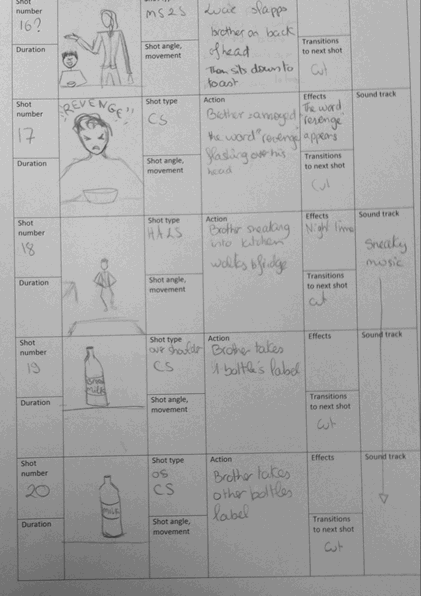 Shot number
16?
Duration
MS2S
Shot angle, movement
Lucie slapps
brother on back
of head
Then sits down to
toast
Transitions to next shot
Cut
Shot number
17
Duration
REVENGE
Shot type
CS
Shot angle, movement
Action
Brother annoyed
the word "revenge"
flashing over his
head
Effects
The word
"revenge"
appears
Transitions to next shot
Cut
Sound track
Shot number
18
Duration
Shot type
Shot angle, movement
Action
Brother sneaking
into kitchen
walks to fridge
Effects
Night time
Transitions to next shot
cut
Sound track
Sneaky
music
Shot number
19
Duration
MILK
Shot type
over shoulder
CS
Shot angle, movement
Action
Brother takes
1 bottle's label
Effects
Transitions to next shot
Cut
Sound track
Shot number
20
Duration
MILK
Shot type
OS
CS
Shot angle, movement
Action
Brother takes
other bottles
label
Effects
Transitions to next shot
Cut
Sound track